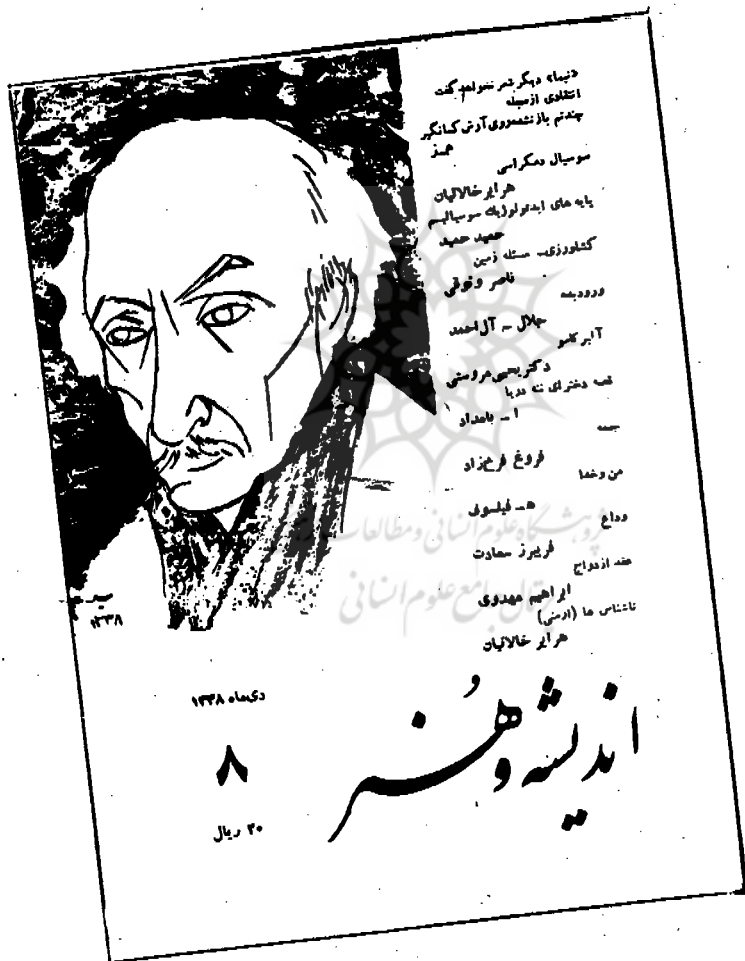 «نیما» دیگر شعر نخواهد گفت
انتقادی از مجله
چندتم باز نشده روی آرش کمانگیر
سوسیال دمکراسی
هرایر خالاتیان
پایه های ایدئولوژیك سوسیالیسم
حمید حمید
کشاورزی- مسئله زمین
ناصر وثوقی
ورود بعد
جلال - آل احمد
آلبر کامو
دکتر یحیی مروستی
قصه دخترای ننه دریا
ا - بامداد
جمعه
فروغ فرخ‌زاد
من و خدا
ه- فیلسوفی
وداع
فریبرز سعادت
عقد ازدواج
ابراهیم مهدوی
ناشناس ها (ارمنی)
هرایر خالاتیان
۱۳۳۸
پژوهشگاه علوم انسانی و مطالعات
پرتال جامع علوم انسانی
دی‌ماه ۱۳۳۸
۸
۲۰ ریال
اندیشه و هنر